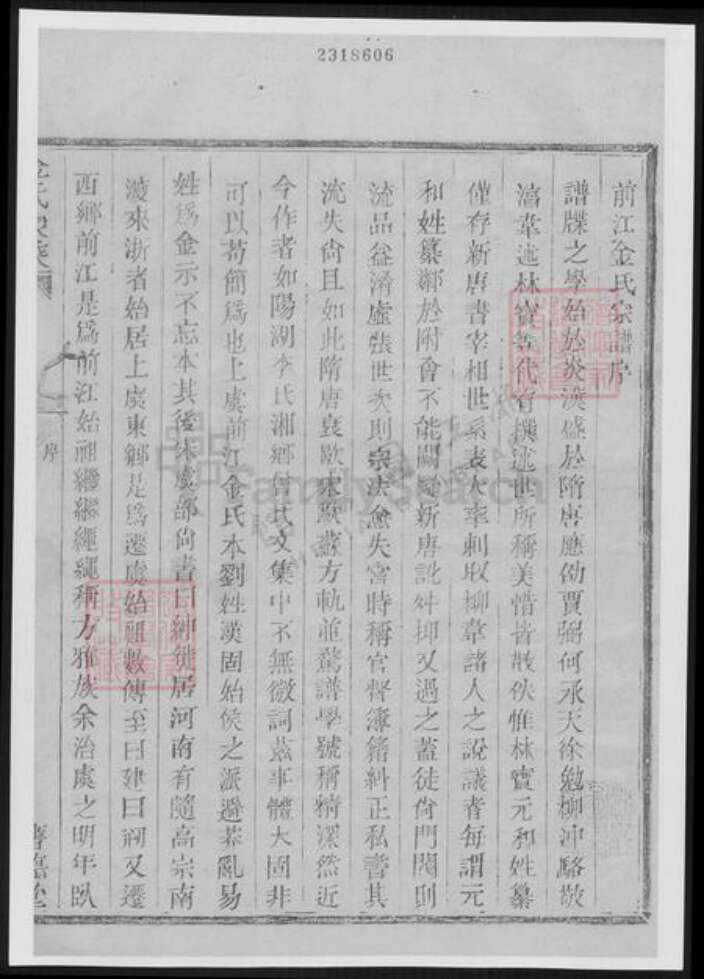 2318606
前江金氏宗譜序
譜牒之學始於炎漢盛於隋唐應劭賈弼何承天徐勉柳沖駱敬
韋述林寶等代有撰述世所稱美惜皆散佚惟林寶元和姓纂
僅存新唐書宰相世系表大率刺取柳韋諸人之說議者每謂元
和姓纂鄰於附會不能闕疑新唐訛舛抑又過之蓋徒尙門閥則
流品益淆虛張世次則宗法愈失當時稱官督簿籍糾正私書其
流失尙且如此隋唐衰歇宋歐蘇方軌並騖譜學號稱精深然近
今作者如陽湖李氏湘鄉曾氏文集中不無微詞茲事體大固非
可以苟簡爲也上虞前江金氏本劉姓漢固始侯之派避莽亂易
姓爲金示不忘本其後宋虞部尙書曰紳徙居河南有隨高宗南
渡來浙者始居上虞東鄉是爲遷虞始祖數傳至曰建曰嗣又遷
西鄉前江是爲前江始祖繼繼繩繩稱方雅族余治虞之明年臥
序